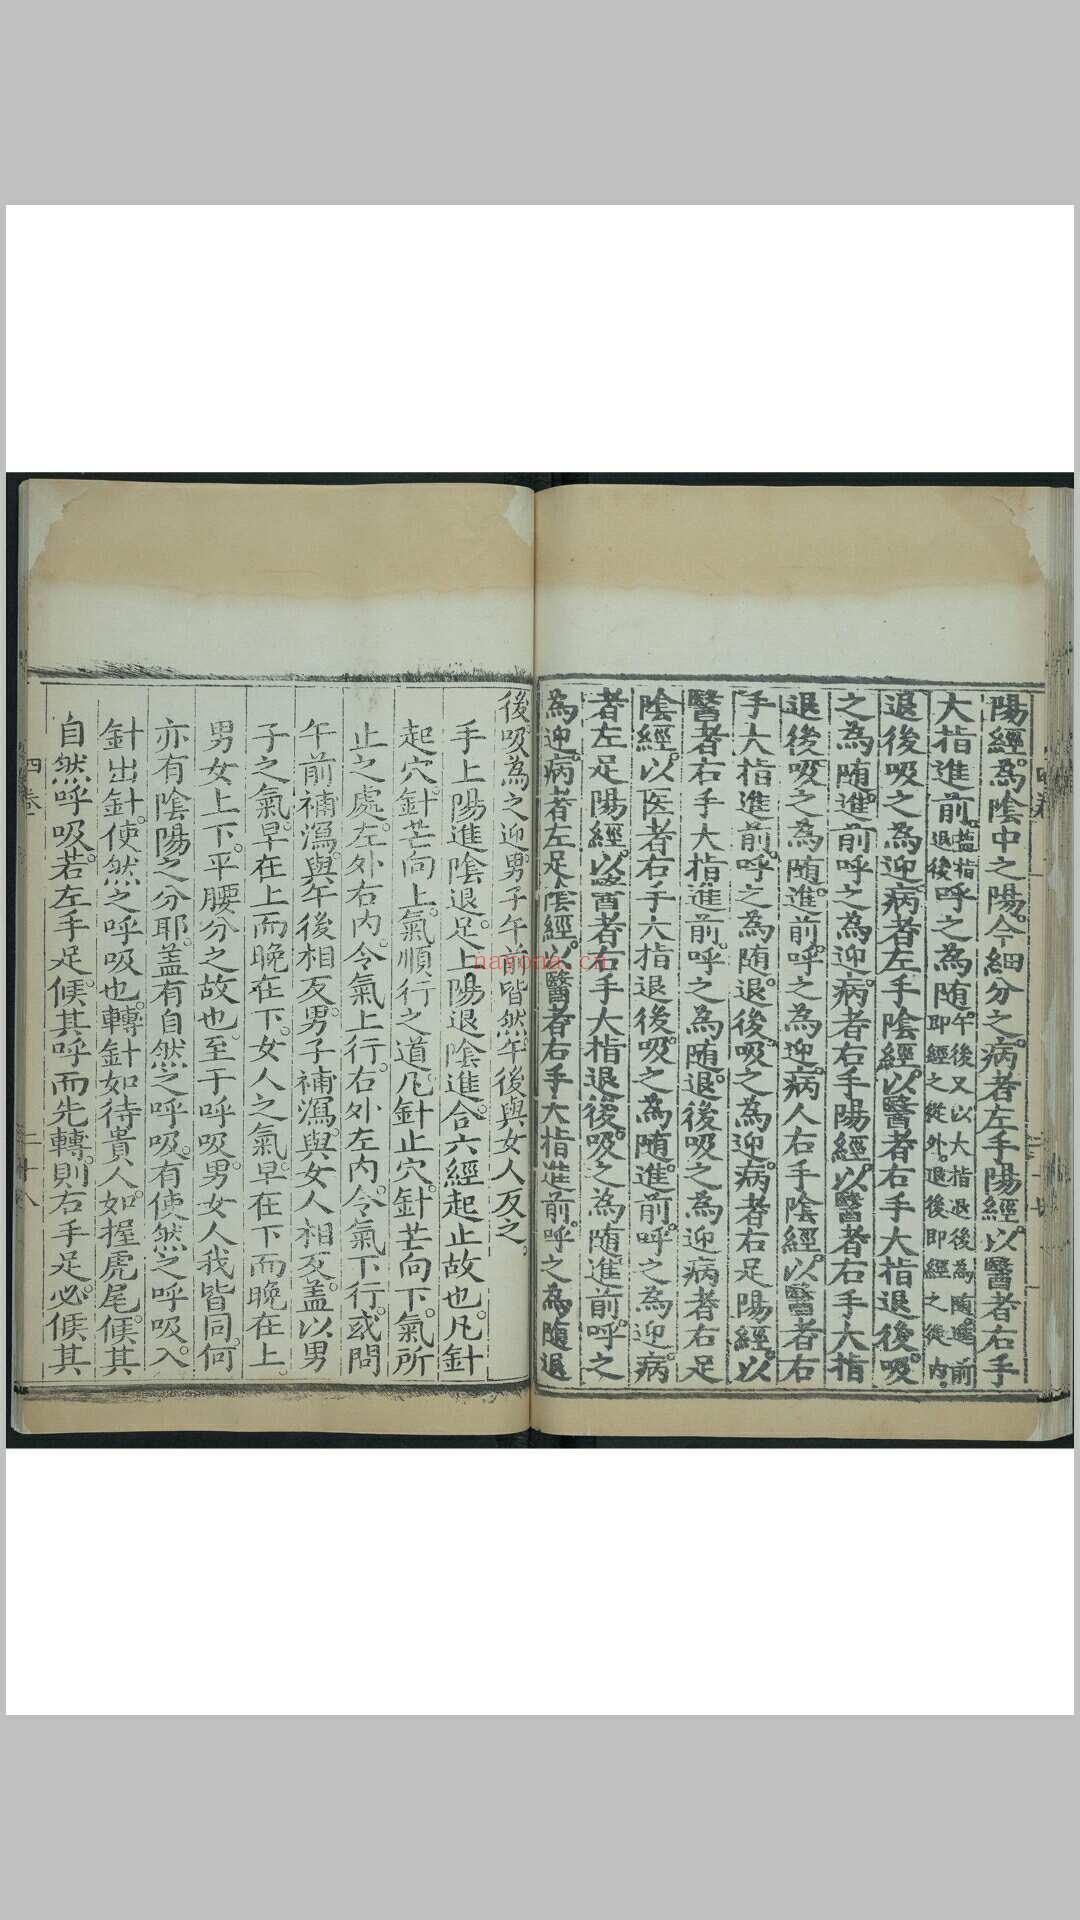 陽經。為陰中之陽。今細分之。病者左手陽經。以醫者右手
大指進前。盖指退後呼之為随。午後又以大指退後為随。進前即經之從外。退後即經之從内。
退後吸之為迎。病者左手陰經。以醫者右手大指退後吸
之為随。進前呼之為迎。病者右手陽經。以醫者右手大指
退後吸之為随。進前。呼之為迎。病人右手陰經。以醫者右
手大指進前。呼之為随。退後吸之為迎。病者右足陽經。以
醫者右手大指進前。呼之為随。退後吸之為迎病者右足
陰經。以医者右手大指退後。吸之為随。進前。呼之為迎。病
者左足陽經。以醫者右手大指退後。吸之為随進前。呼之
為迎。病者左足陰經。以醫者右手大指進前。呼之為随退
後吸為之迎。男子午前皆然。午後與女人反之。
手上陽進陰退。足上陽退陰進。合六經起止故也。凡針
起穴。針芒向上。氣順行之道。凡針止穴。針芒向下。氣所
止之處。左外右内。令氣上行。右外左内。令氣下行。或問
午前補瀉。與午後相反。男子補瀉。與女人相反。盖以男
子之氣。早在上而晚在下。女人之氣。早在下而晚在上。
男女上下。平腰分之故也。至于呼吸。男女人我皆同。何
亦有陰陽之分耶。盖有自然之呼吸。有使然之呼吸。入
針出針。使然之呼吸也。轉針如待貴人。如握虎尾。候其
自然呼吸。若左手足。候其呼而先轉。則右手足。必候其
四卷
二十八
nayona.cn